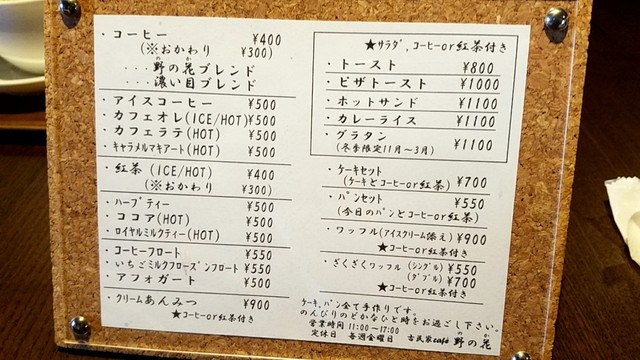 ・コーヒー ¥400
(※おかわり ¥300)
・・・野の花ブレンド
・・・濃い目ブレンド
・アイスコーヒー ¥500
・カフェオレ(ICE/HOT) ¥500
・カフェラテ(HOT) ¥500
・キャラメルマキアート(HOT) ¥500
・紅茶 (ICE/HOT) ¥400
(※おかわり ¥300)
・ハーブティー ¥500
・ココア(HOT) ¥500
・ロイヤルミルクティー(HOT) ¥500
・コーヒーフロート ¥550
・いちごミルクフローズンフロート ¥550
・アフォガート ¥500
・クリームあんみつ ¥900
★コーヒーor紅茶付き
★サラダ、コーヒーor紅茶付き
・トースト ¥800
・ピザトースト ¥1000
・ホットサンド ¥1100
・カレーライス ¥1100
・グラタン ¥1100
(冬季限定11月~3月)
・ケーキセット ¥700
(ケーキとコーヒーor紅茶)
・パンセット ¥550
(今日のパンとコーヒーor紅茶)
・ワッフル(アイスクリーム添え) ¥900
★コーヒーor紅茶付き
・ざくざくワッフル (シングル) ¥550
(ダブル) ¥700
★コーヒーor紅茶付き
ケーキ、パン全て手作りです。
のんびりのどかなひと時をお過ごし下さい。
営業時間 11:00~17:00
定休日 毎週金曜日 古民家café 野の花